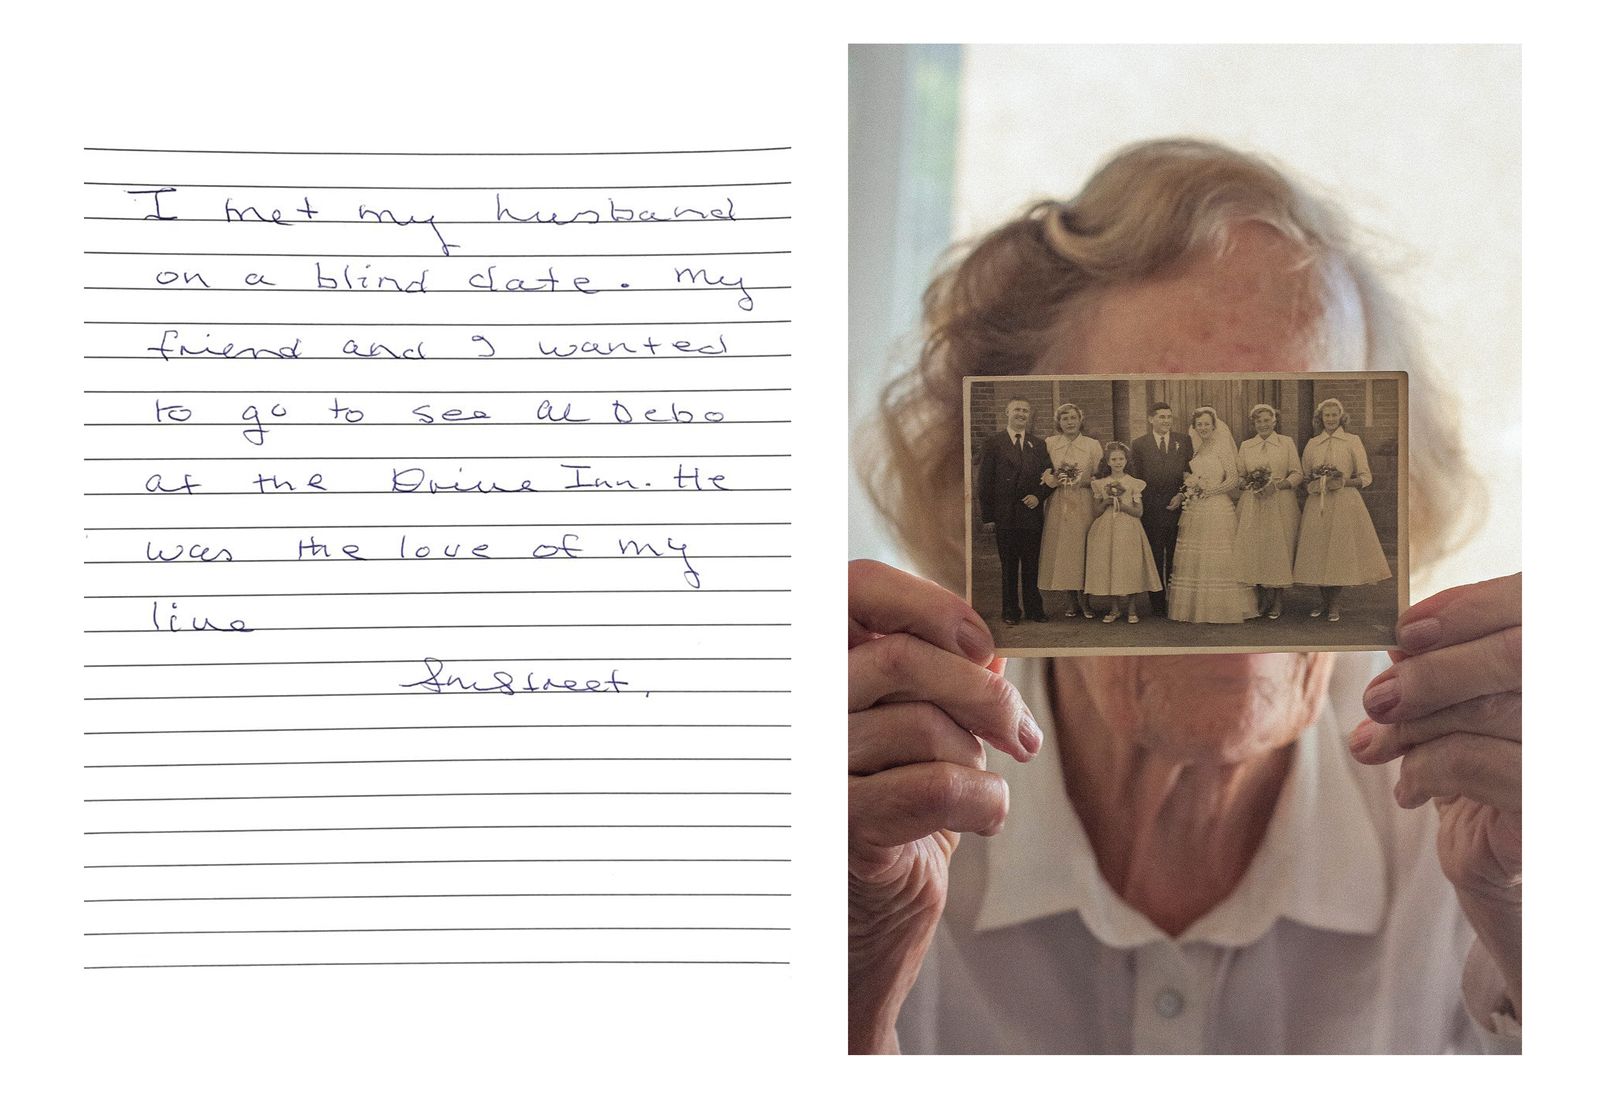 I met my husband
on a blind date. My
friend and I wanted
to go to see al Debo
at the Drive Inn. He
was the love of my
live
Street,